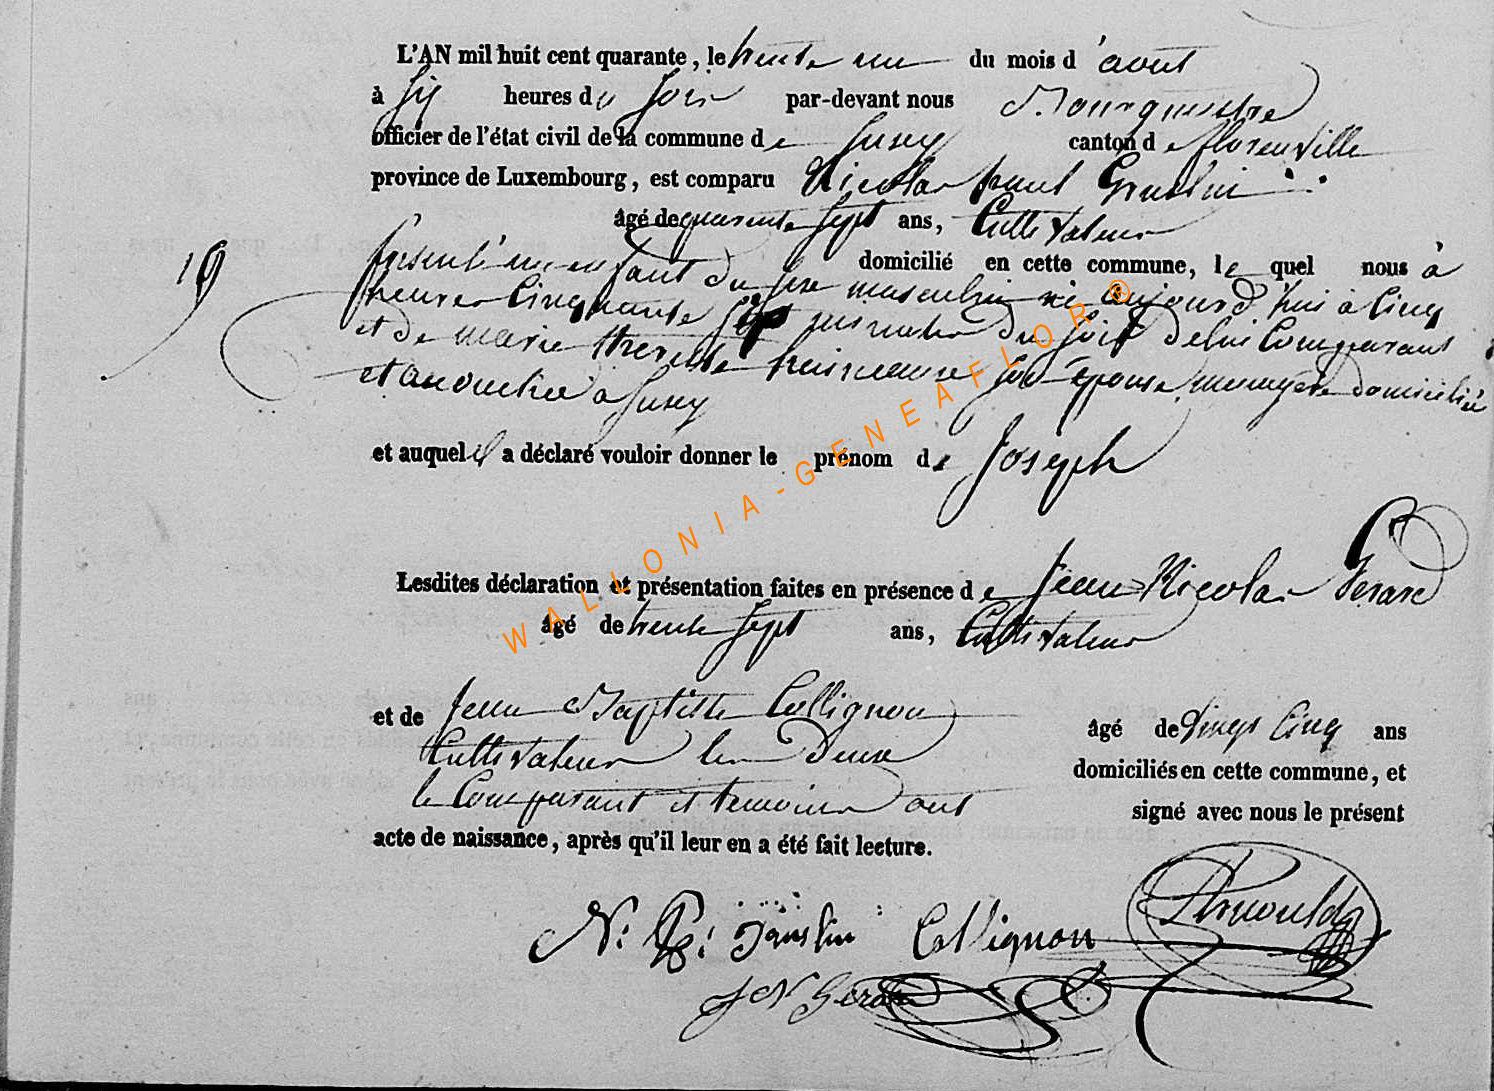 L'AN mil huit cent quarante, le trente un du mois d'aout
à six heures du soir par-devant nous Bourguestre
officier de l'état civil de la commune de Suxy canton de florenville
province de Luxembourg, est comparu Nicolas paul
âgé de quarente sept ans, Cultivateur
domicilié en cette commune, lequel nous à
19
présenté un enfant du sexe masculin né aujourd'hui à Cinq
heures Cinquante sept minutes du soir de lui Comparant
et de marie therese son épouse, menagere domiciliée
et acouchée à Suxy
et auquel il a déclaré vouloir donner le prénom de Joseph
Lesdites déclaration et présentation faites en présence de Jean Nicolas Gerard
âgé de trente sept ans, Cultivateur
et de Jean Baptiste Collignon âgé de vingt Cinq ans
Cultivateur les Deux domiciliés en cette commune, et
le Comparant et temoins ont signé avec nous le présent
acte de naissance, après qu'il leur en a été fait lecture.
N: P: Collignon
J N Gerard
WALLONIA-GENEAFLOR®